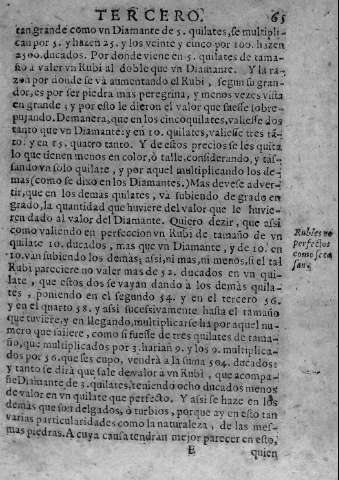 TERCERO. 65
tan grande como vn Diamante de 5. quilates, se multipli-
can por 5. y hazen 25. y los veinte y cinco por 100. hazen
2500. ducados. Por donde viene en 5. quilates de tama-
ño a valer vn Rubi al doble que vn Diamante. Y la ra-
zon por donde se va aumentando el Rubi, segun su gran-
dor, es por ser piedra mas peregrina, y menos vezes vista
en grande; y por esto le dieron el valor que fuesse sobre-
pujando. Demanera, que en los cinco quilates, valiesse dos
tanto que vn Diamante: y en 10. quilates, valiesse tres tã-
to: y en 15. quatro tanto. Y de estos precios se les quita
lo que tienen menos en color, ò talle, considerando, y tas-
sando vn solo quilate, y por aquel multiplicando los de-
mas (como se dixo en los Diamantes.) Mas devese adver-
tir, que en los demas quilates, va subiendo de grado en
grado, la quantidad que huviere del valor que le huvie-
ren dado al valor del Diamante. Quiero dezir, que assi
como valiendo en perfeccion vn Rubi de tamaño de vn
quilate 10. ducados, mas que vn Diamante, y de 10. en
10. van subiendo los demas; assi, ni mas, ni menos, si el tal
Rubi pareciere no valer mas de 52. ducados en vn qui-
late, que estos dos se vayan dando à los demàs quila-
tes, poniendo en el segundo 54. y en el tercero 56.
y en el quarto 58. y assi sucessivamente hasta el tamaño
que tuviere, y en llegando, multiplicarse ha por aquel nu-
mero que saliere, como si fuesse de tres quilates de tama-
ño, que multiplicados por 3. harian 9. y los 9. multiplica-
dos por 56. que les cupo, vendrà a la suma 504. ducados:
y tanto se dirà que sale de valor a vn Rubi, que acompa-
ñe Diamante de 3. quilates, teniendo ocho ducados menos
de valor en vn quilate que perfecto. Y assi se haze en los
demàs que son delgados, ò turbios, porque ay en esto tan
varias particularidades como la naturaleza, de las mes-
mas piedras. A cuya causa tendràn mejor parecer en esto,
E quien
Rubies no
perfectos
como se ta
san.